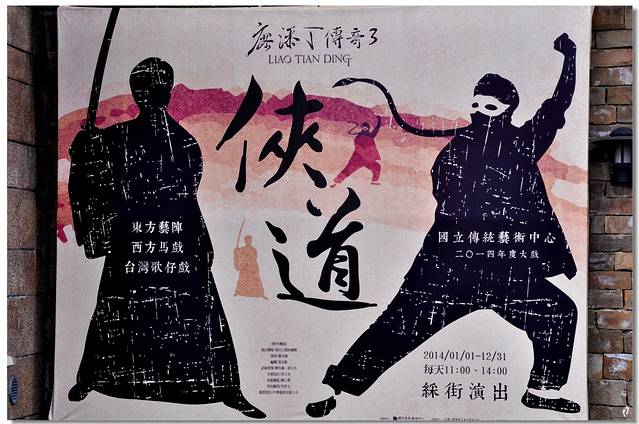 廖添丁傳奇3
LIAO TIAN DING
俠道
東方藝陣
西方馬戲
台灣歌仔戲
國立傳統藝術中心
二〇一四年度大戲
2014/01/01-12/31
每天11:00、14:00
綵街演出